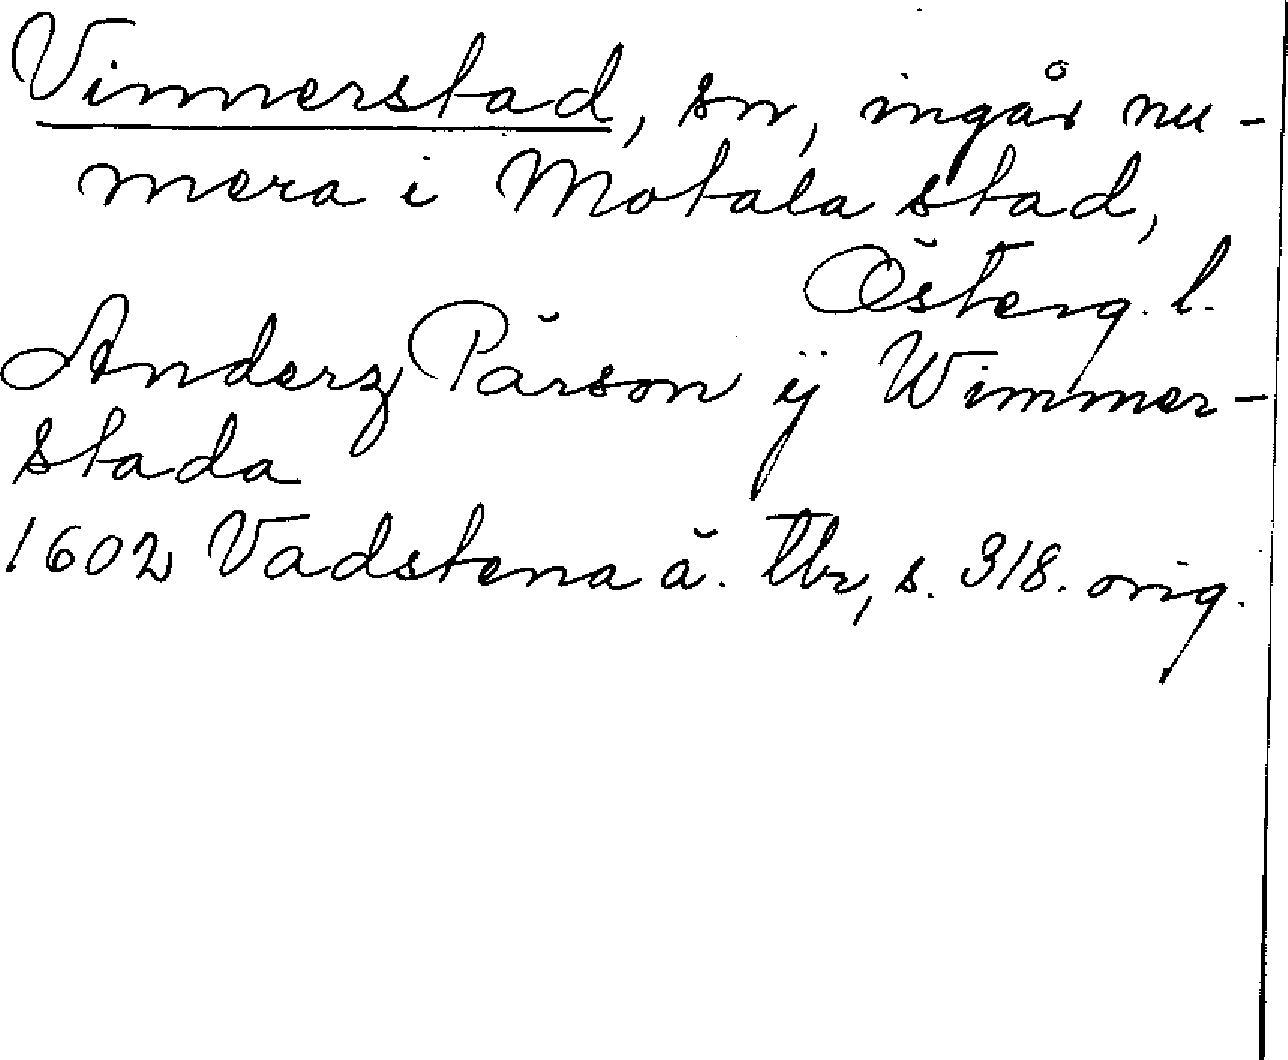 Vinnerstad, sn, ingår nu-
mera i Motala stad,
Österg. l.
Anderz Pärson ij Wimmer-
stada
1602 Vadstena ä. tbr, s. 318. orig.